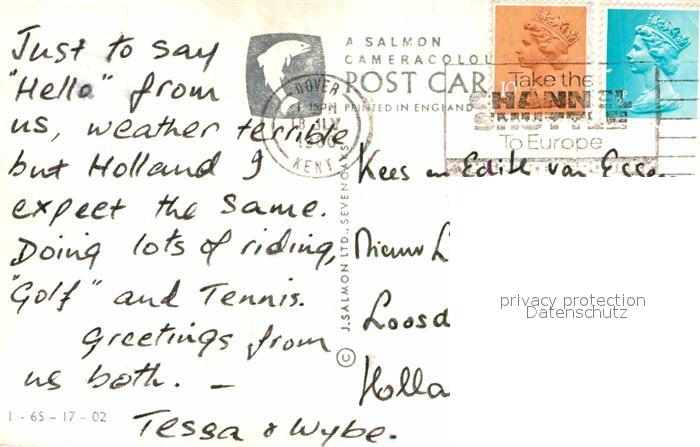 Just to say
"Hello" from
us, weather terrible
but Holland I
expect the same.
Doing lots of riding,
"Golf" and Tennis.
Greetings from
us both. –
Tessa & Wybe.
1 - 65 - 17 - 02
A SALMON
CAMERACOLOU
POST CAR
PRINTED IN ENGLAND
© J. SALMON LTD., SEVENOAKS
DOVER
KENT
Take the
CHANNEL
SHUTTLE
To Europe
Kees en Edith van Esse
Nieuw L
Loosd
Holla
privacy protection
Datenschutz